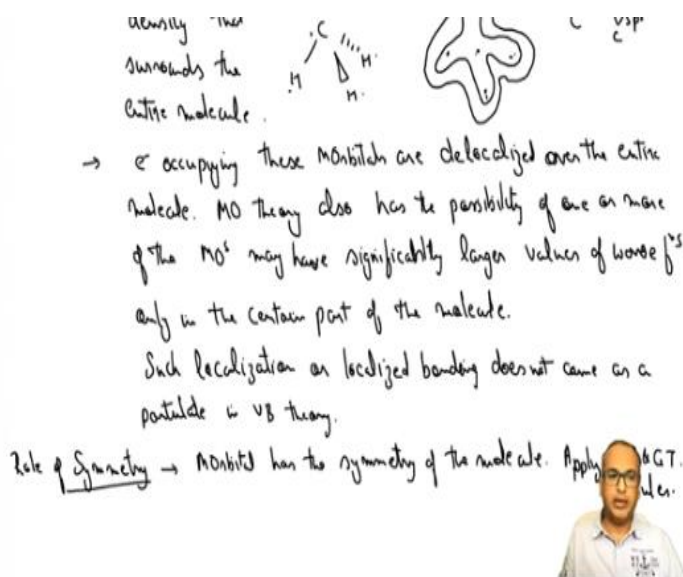 density that
surrounds the
entire molecule.
.C
H.
H.
H.
C
C
→ e⁻ occupying these MOrbitals are delocalized over the entire
molecule. MO theory also has the possibility of one or more
of the MOs may have significantly larger values of wave fⁿs
only in the certain part of the molecule.
Such localization or localized bonding does not come as a
postulate in VB theory.
Role of Symmetry → MOrbital has the symmetry of the molecule. Apply GT.